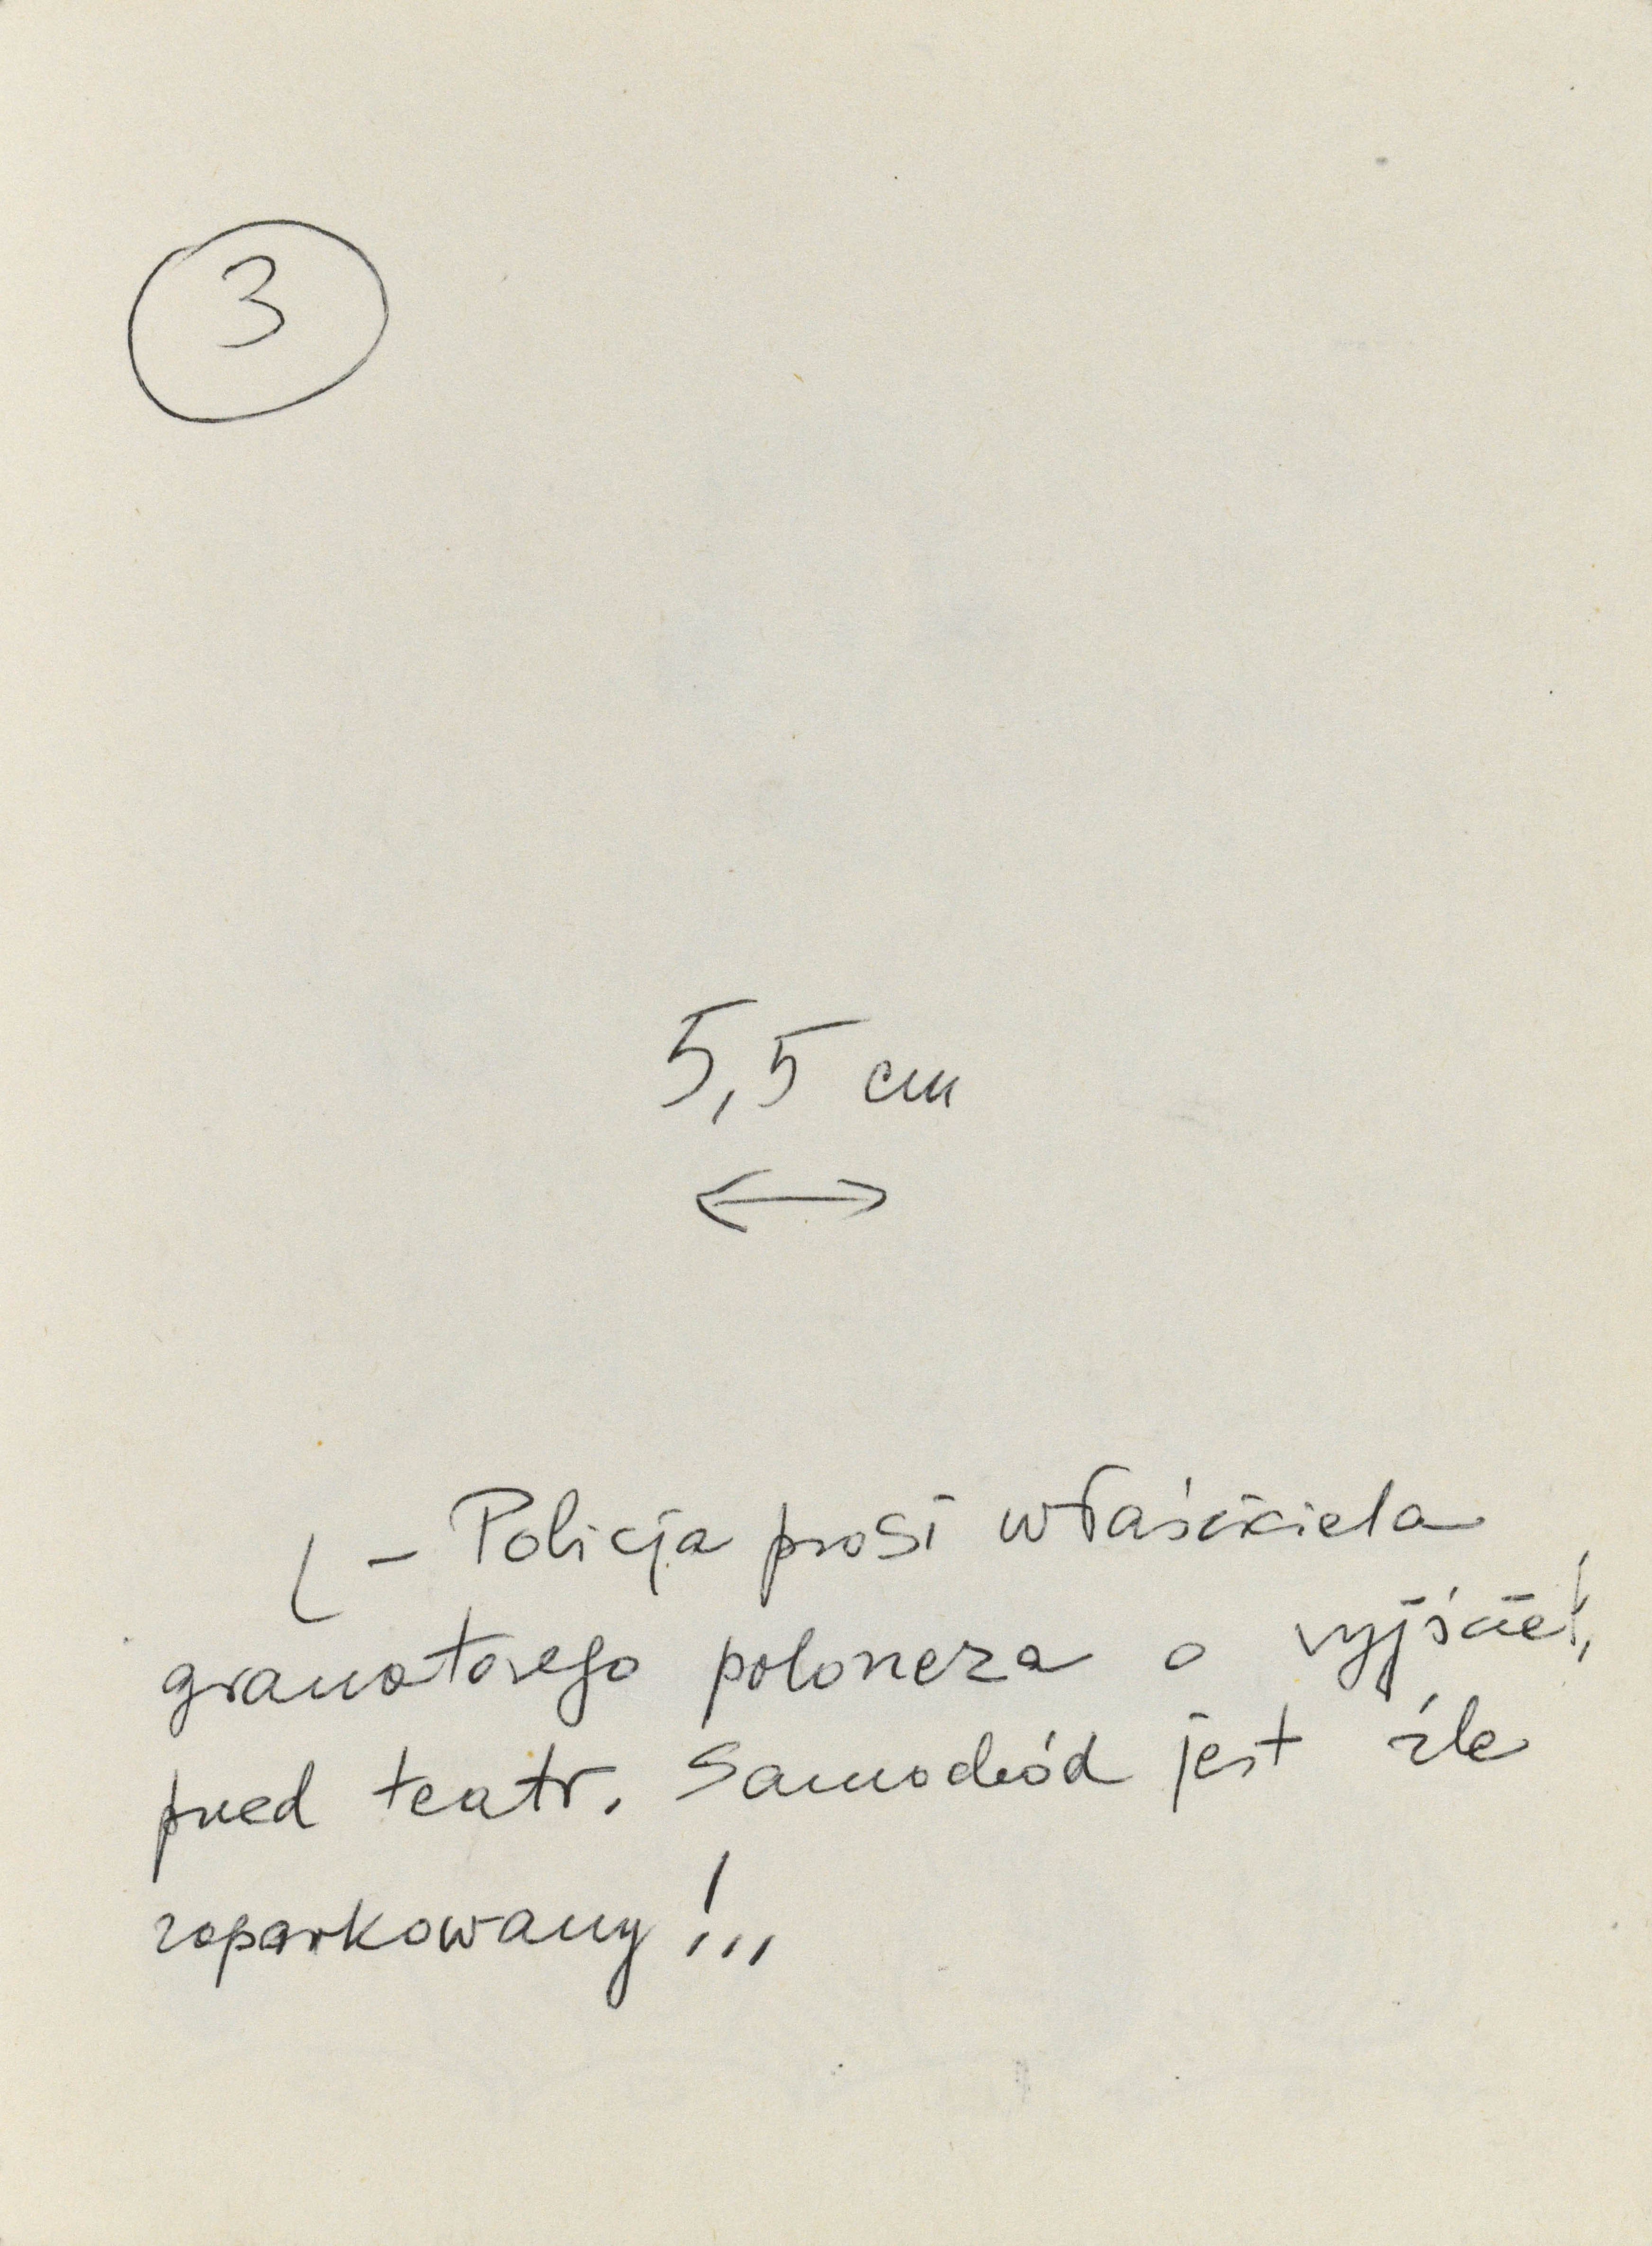 3
5,5 cm
- Policja prosi właściciela
granatowego poloneza o wyjście!,
przed teatr. Samochód jest źle
zaparkowany!,,